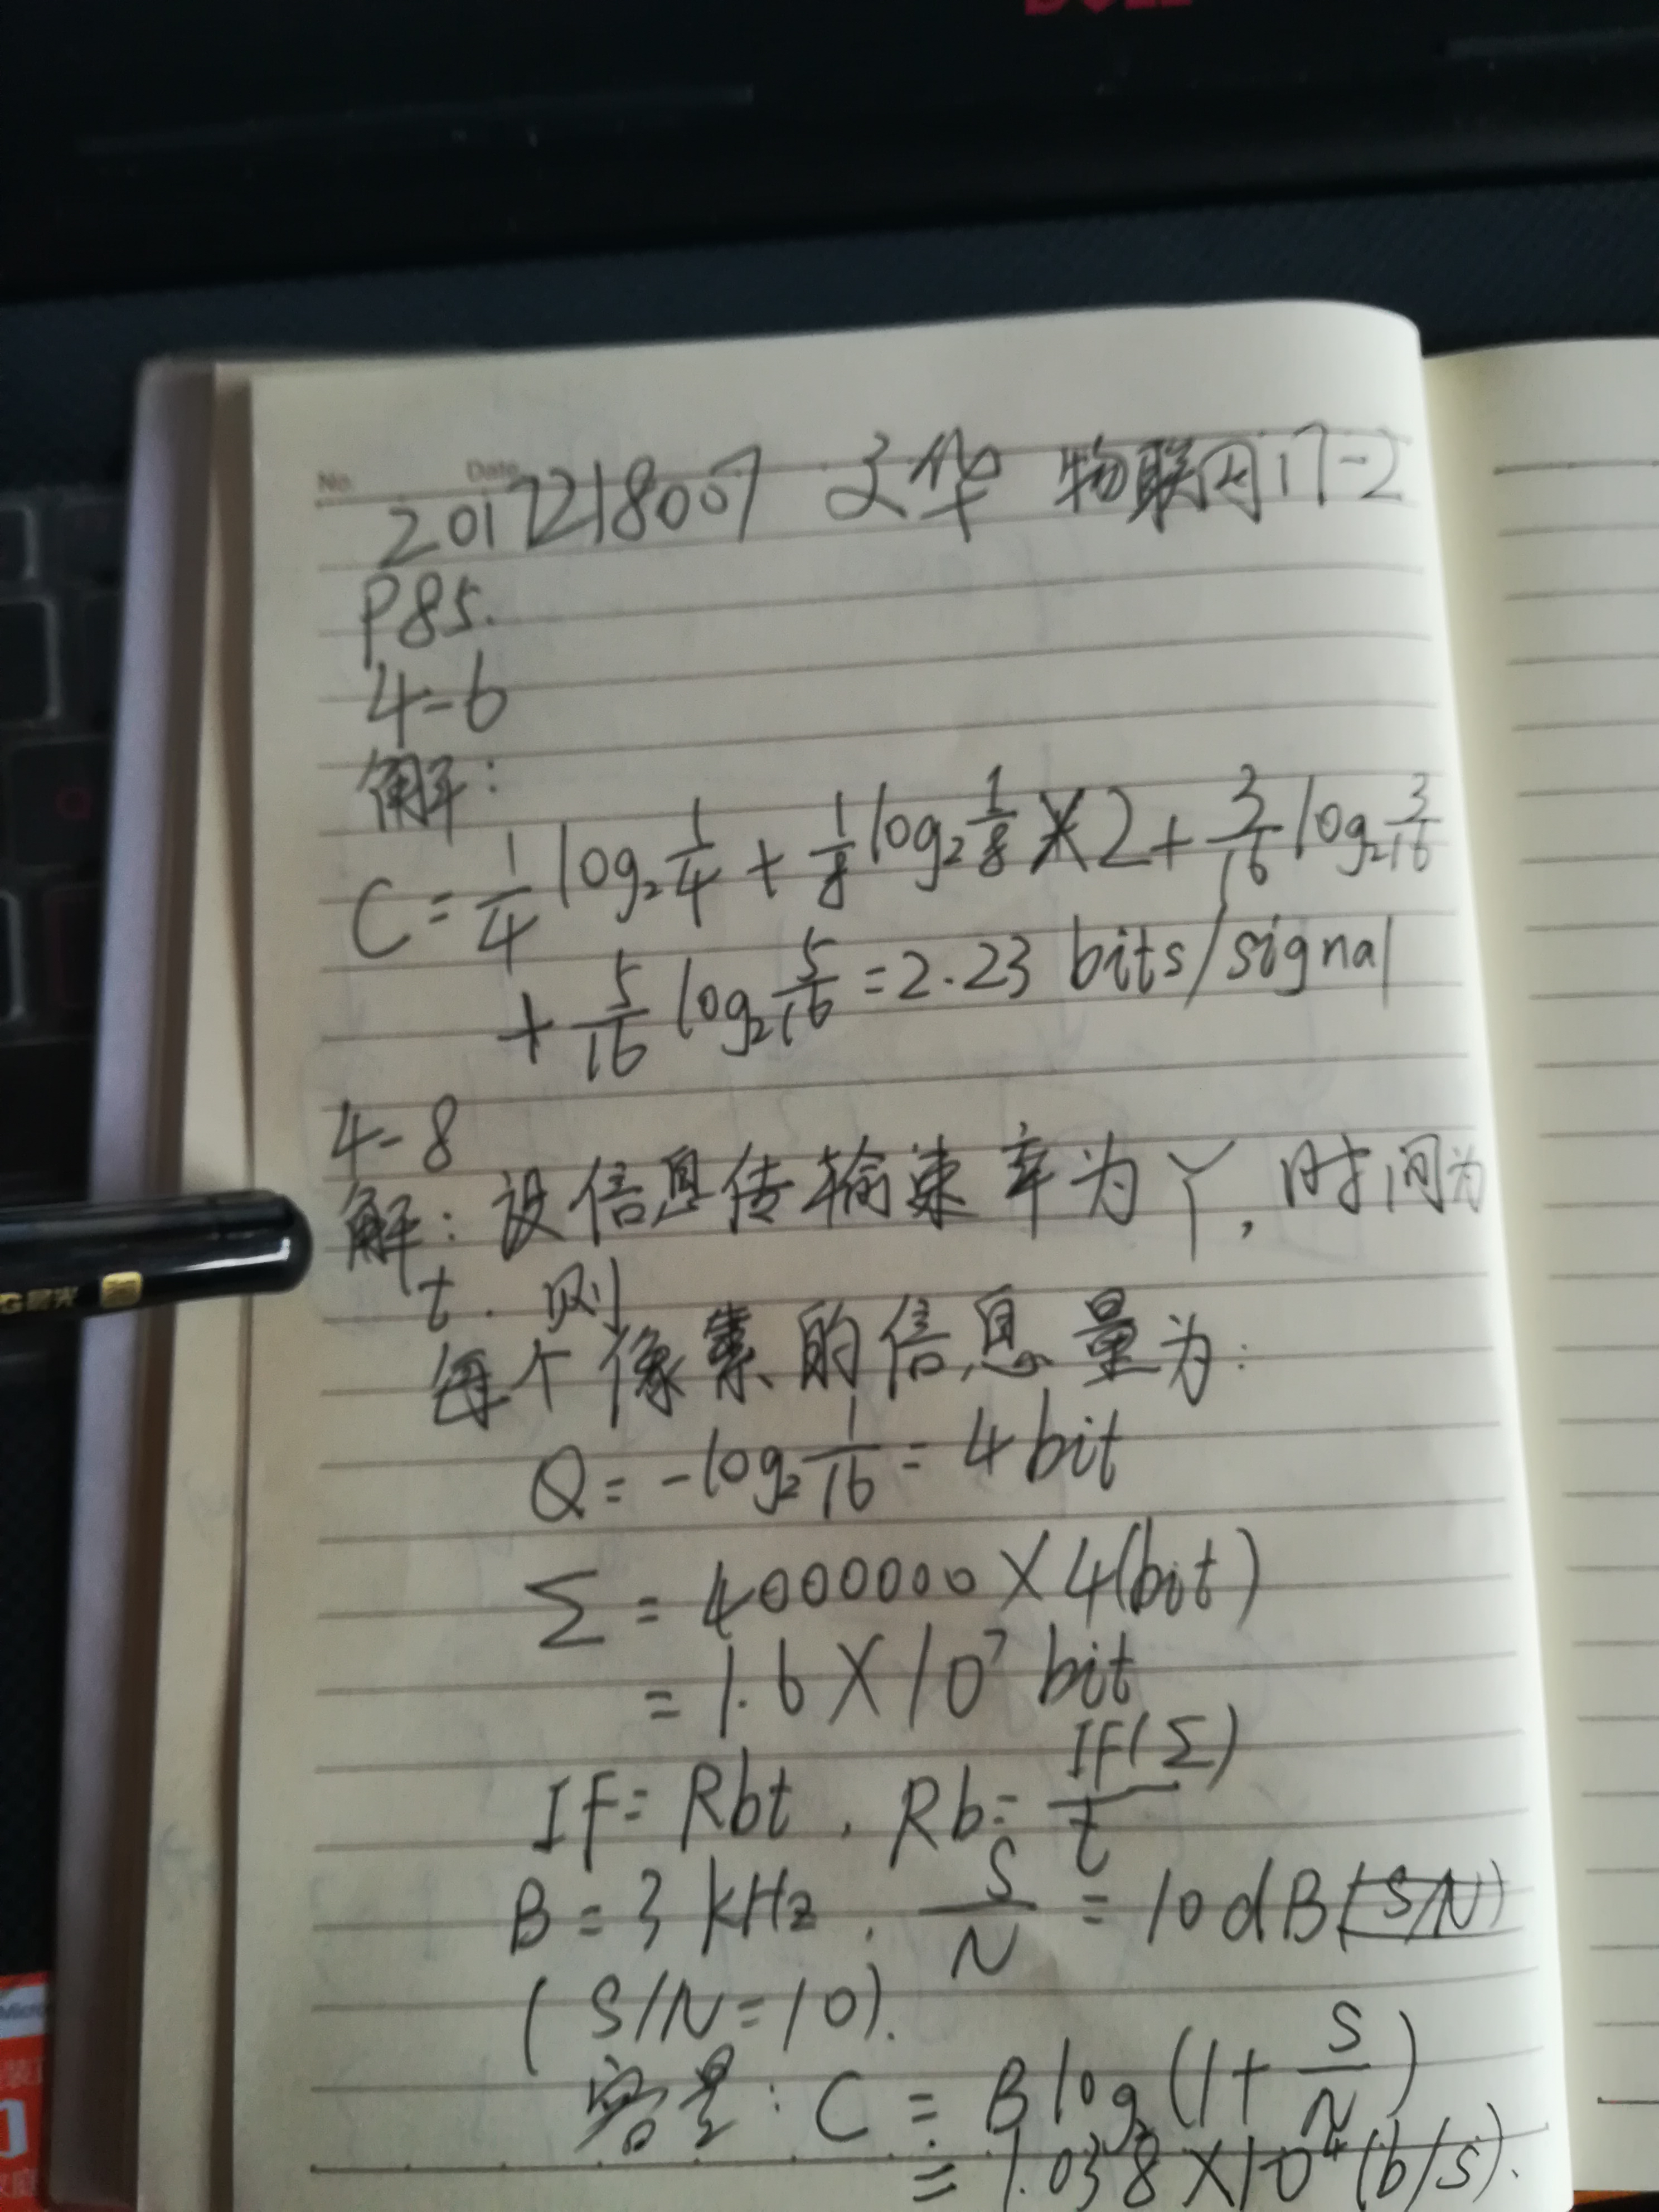 No.
Date
2017218007 文华 物联网17-2
P85.
4-6
解:
C = 1/4 log₂ 1/4 + 1/8 log₂ 1/8 × 2 + 3/16 log₂ 3/16
+ 5/16 log₂ 5/16 = 2.23 bits/signal
4-8
解: 设信息传输速率为 Y, 时间为
t. 则
每个像素的信息量为:
Q = -log₂ 1/16 = 4 bit
Σ = 4000000 × 4(bit)
= 1.6 × 10⁷ bit
IF = Rbt . Rb = IF(Σ)/t
B = 3 kHz . S/N = 10 dB (S/N)
( S/N = 10).
容量: C = B log₂ (1 + S/N)
= 1.038 × 10⁴ (b/s).